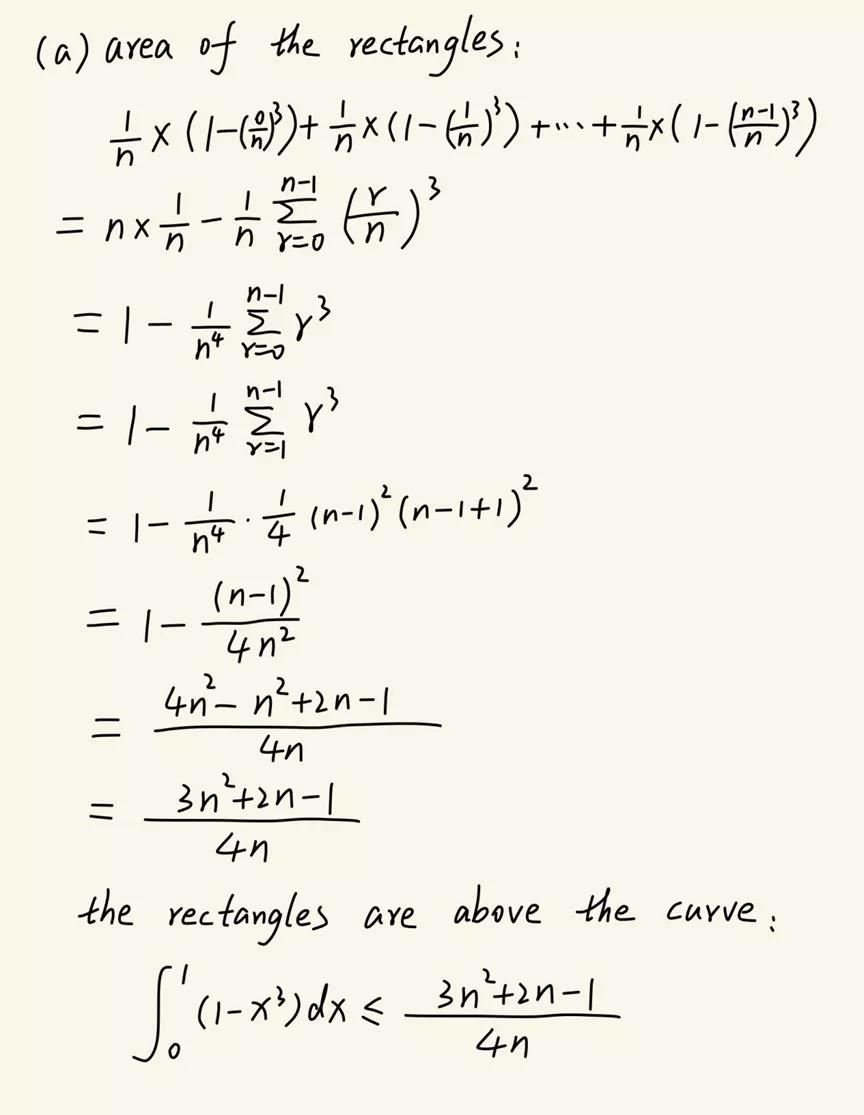 (a) area of the rectangles:
1/n × (1-(0/n)³) + 1/n × (1-(1/n)³) + ··· + 1/n × (1-((n-1)/n)³)
= n × 1/n - 1/n ∑_{r=0}^{n-1} (r/n)³
= 1 - 1/n⁴ ∑_{r=0}^{n-1} r³
= 1 - 1/n⁴ ∑_{r=1}^{n-1} r³
= 1 - 1/n⁴ · 1/4 (n-1)² (n-1+1)²
= 1 - (n-1)²/4n²
= (4n² - n² + 2n - 1)/4n
= (3n² + 2n - 1)/4n
the rectangles are above the curve:
∫₀¹ (1-x³) dx ≤ (3n² + 2n - 1)/4n